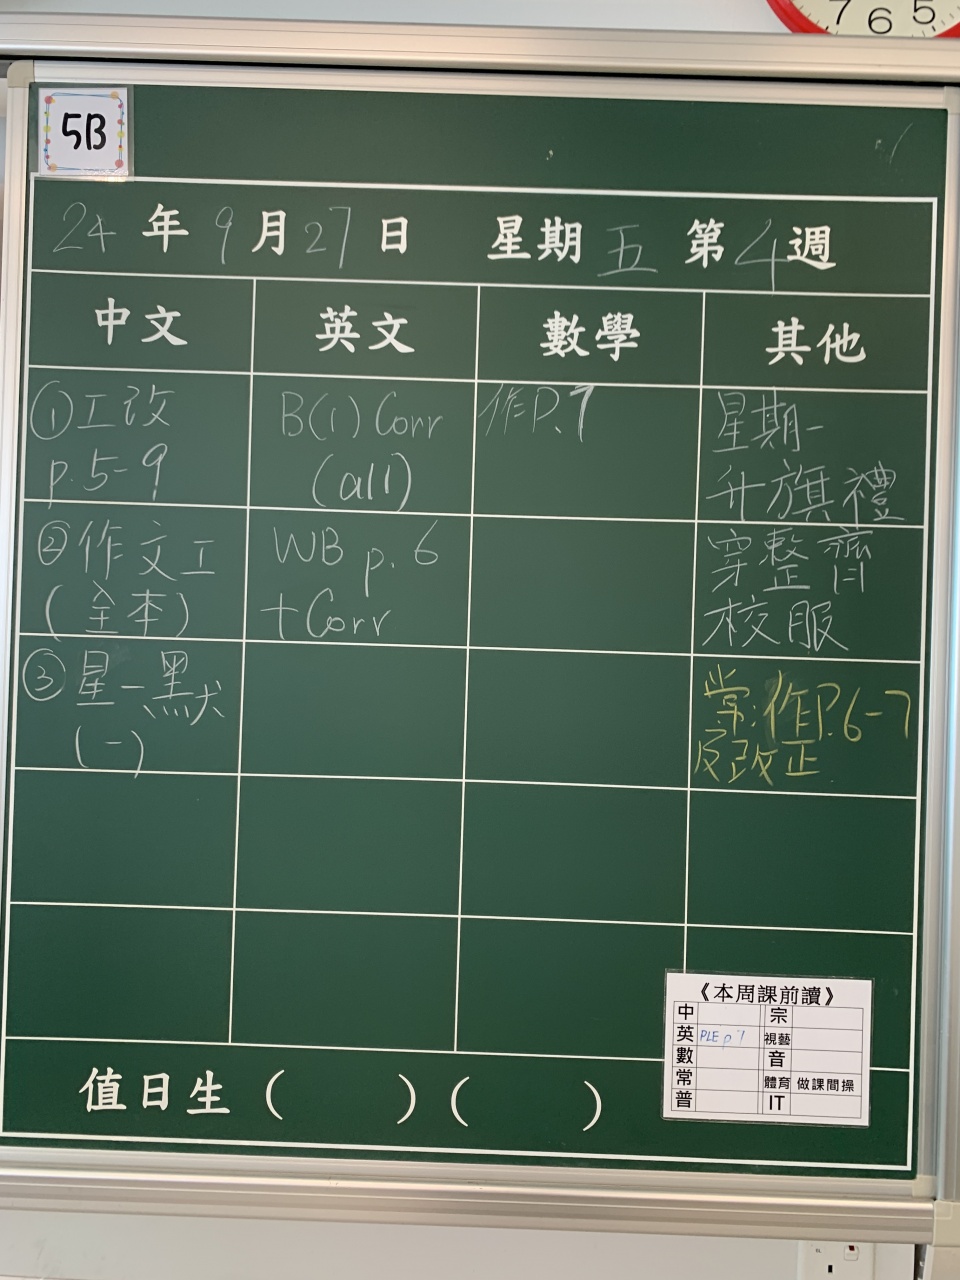 7 6 5
5B
24 年 9 月 27 日 星期 五 第 4 週
中文 英文 數學 其他
①工改
p.5-9
B(1) Corr
(all)
作P.7
星期一
升旗禮
②作文工
(全本)
WB p.6
+Corr
穿整齊
校服
③星一默
(一)
常:作P.6-7
及改正
《本周課前讀》
中 宗
英 PLE p 7 視藝
數 音
常 體育 做課間操
普 IT
值日生 ( ) ( )